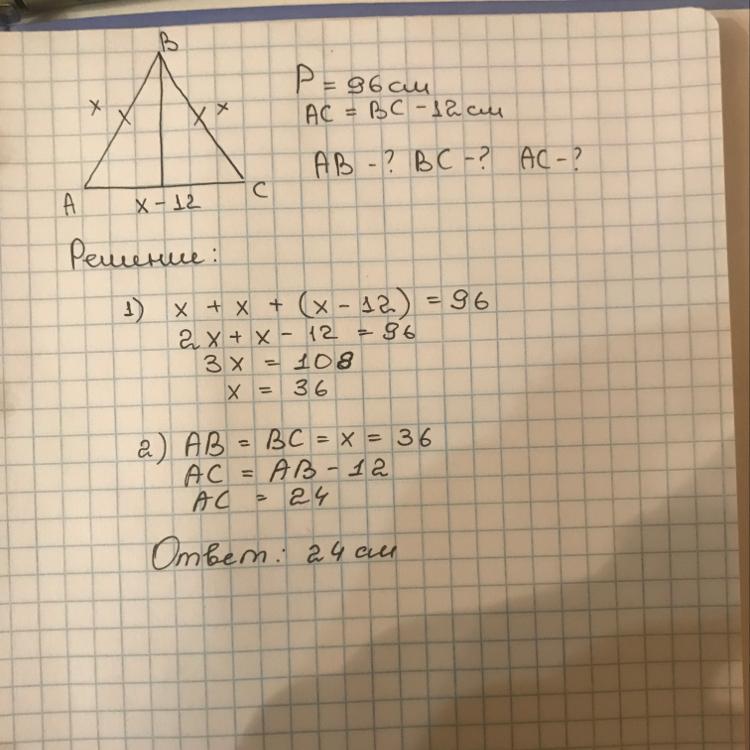 B
P = 96 см
x x
AC = BC - 12 см
AB - ? BC - ? AC - ?
A x - 12 C
Решение:
1) x + x + (x - 12) = 96
2x + x - 12 = 96
3x = 108
x = 36
2) AB = BC = x = 36
AC = AB - 12
AC = 24
Ответ: 24 см